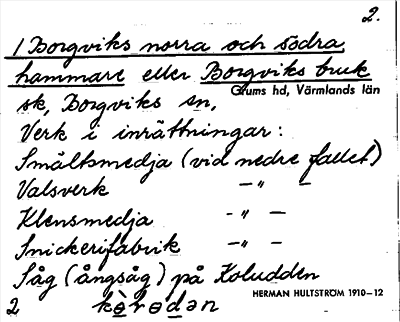 2.
1 Borgviks norra och södra
hammare eller Borgviks bruk
Grums hd, Värmlands län
sk, Borgviks sn,
Verk i inrättningar:
Smältsmedja (vid nedre fallet)
Valsverk — " —
Klensmedja - " —
Snickerifabrik — " —
Såg (ångsåg) på Koludden
HERMAN HULTSTRÖM 1910–12
2